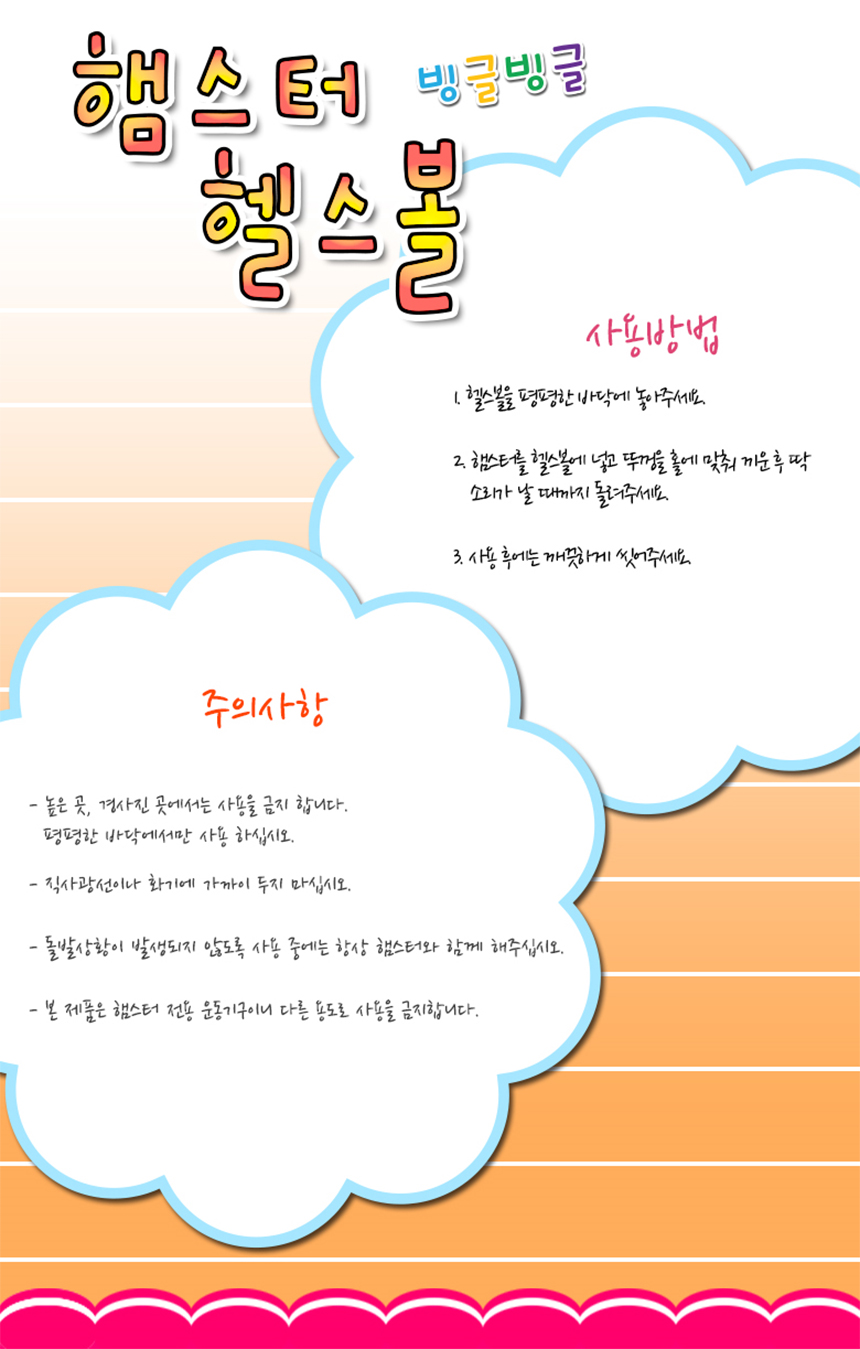 햄스터 빙글빙글
헬스볼
사용방법
1. 헬스볼을 평평한 바닥에 놓아주세요.
2. 햄스터를 헬스볼에 넣고 뚜껑을 홀에 맞춰 끼운 후 딱
소리가 날 때까지 돌려주세요.
3. 사용 후에는 깨끗하게 씻어주세요.
주의사항
- 높은 곳, 경사진 곳에서는 사용을 금지 합니다.
평평한 바닥에서만 사용 하십시오.
- 직사광선이나 화기에 가까이 두지 마십시오.
- 돌발상황이 발생되지 않도록 사용 중에는 항상 햄스터와 함께 해주십시오.
- 본 제품은 햄스터 전용 운동기구이니 다른 용도로 사용을 금지합니다.